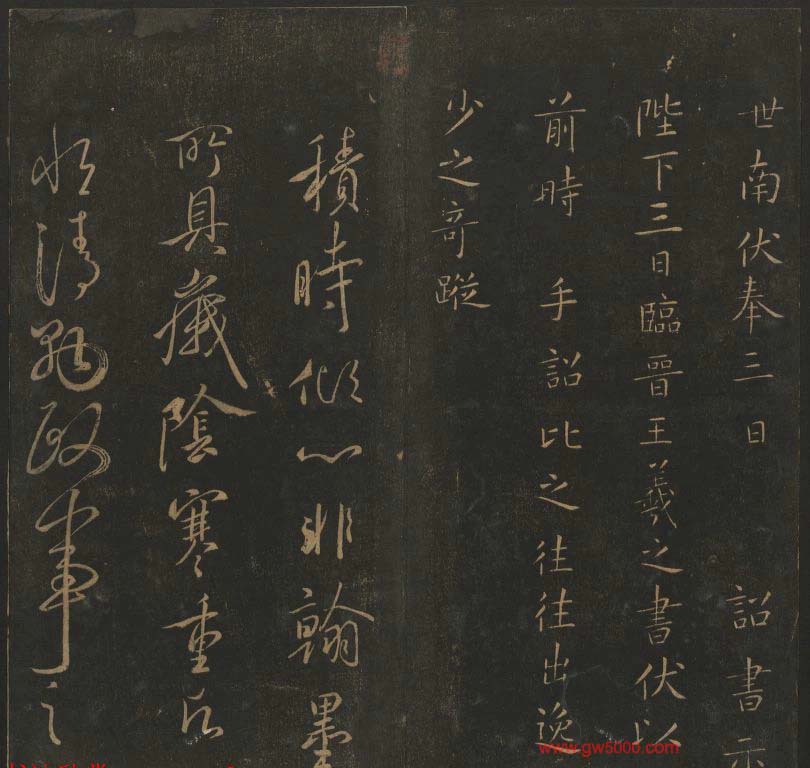 世南伏奉三日 詔書示
陛下三日臨晉王羲之書伏以
前時 手詔比之往往出逸
少之奇蹤
積時傾心非翰墨
所具歲陰寒重
清 政事之
www.gw5000.com